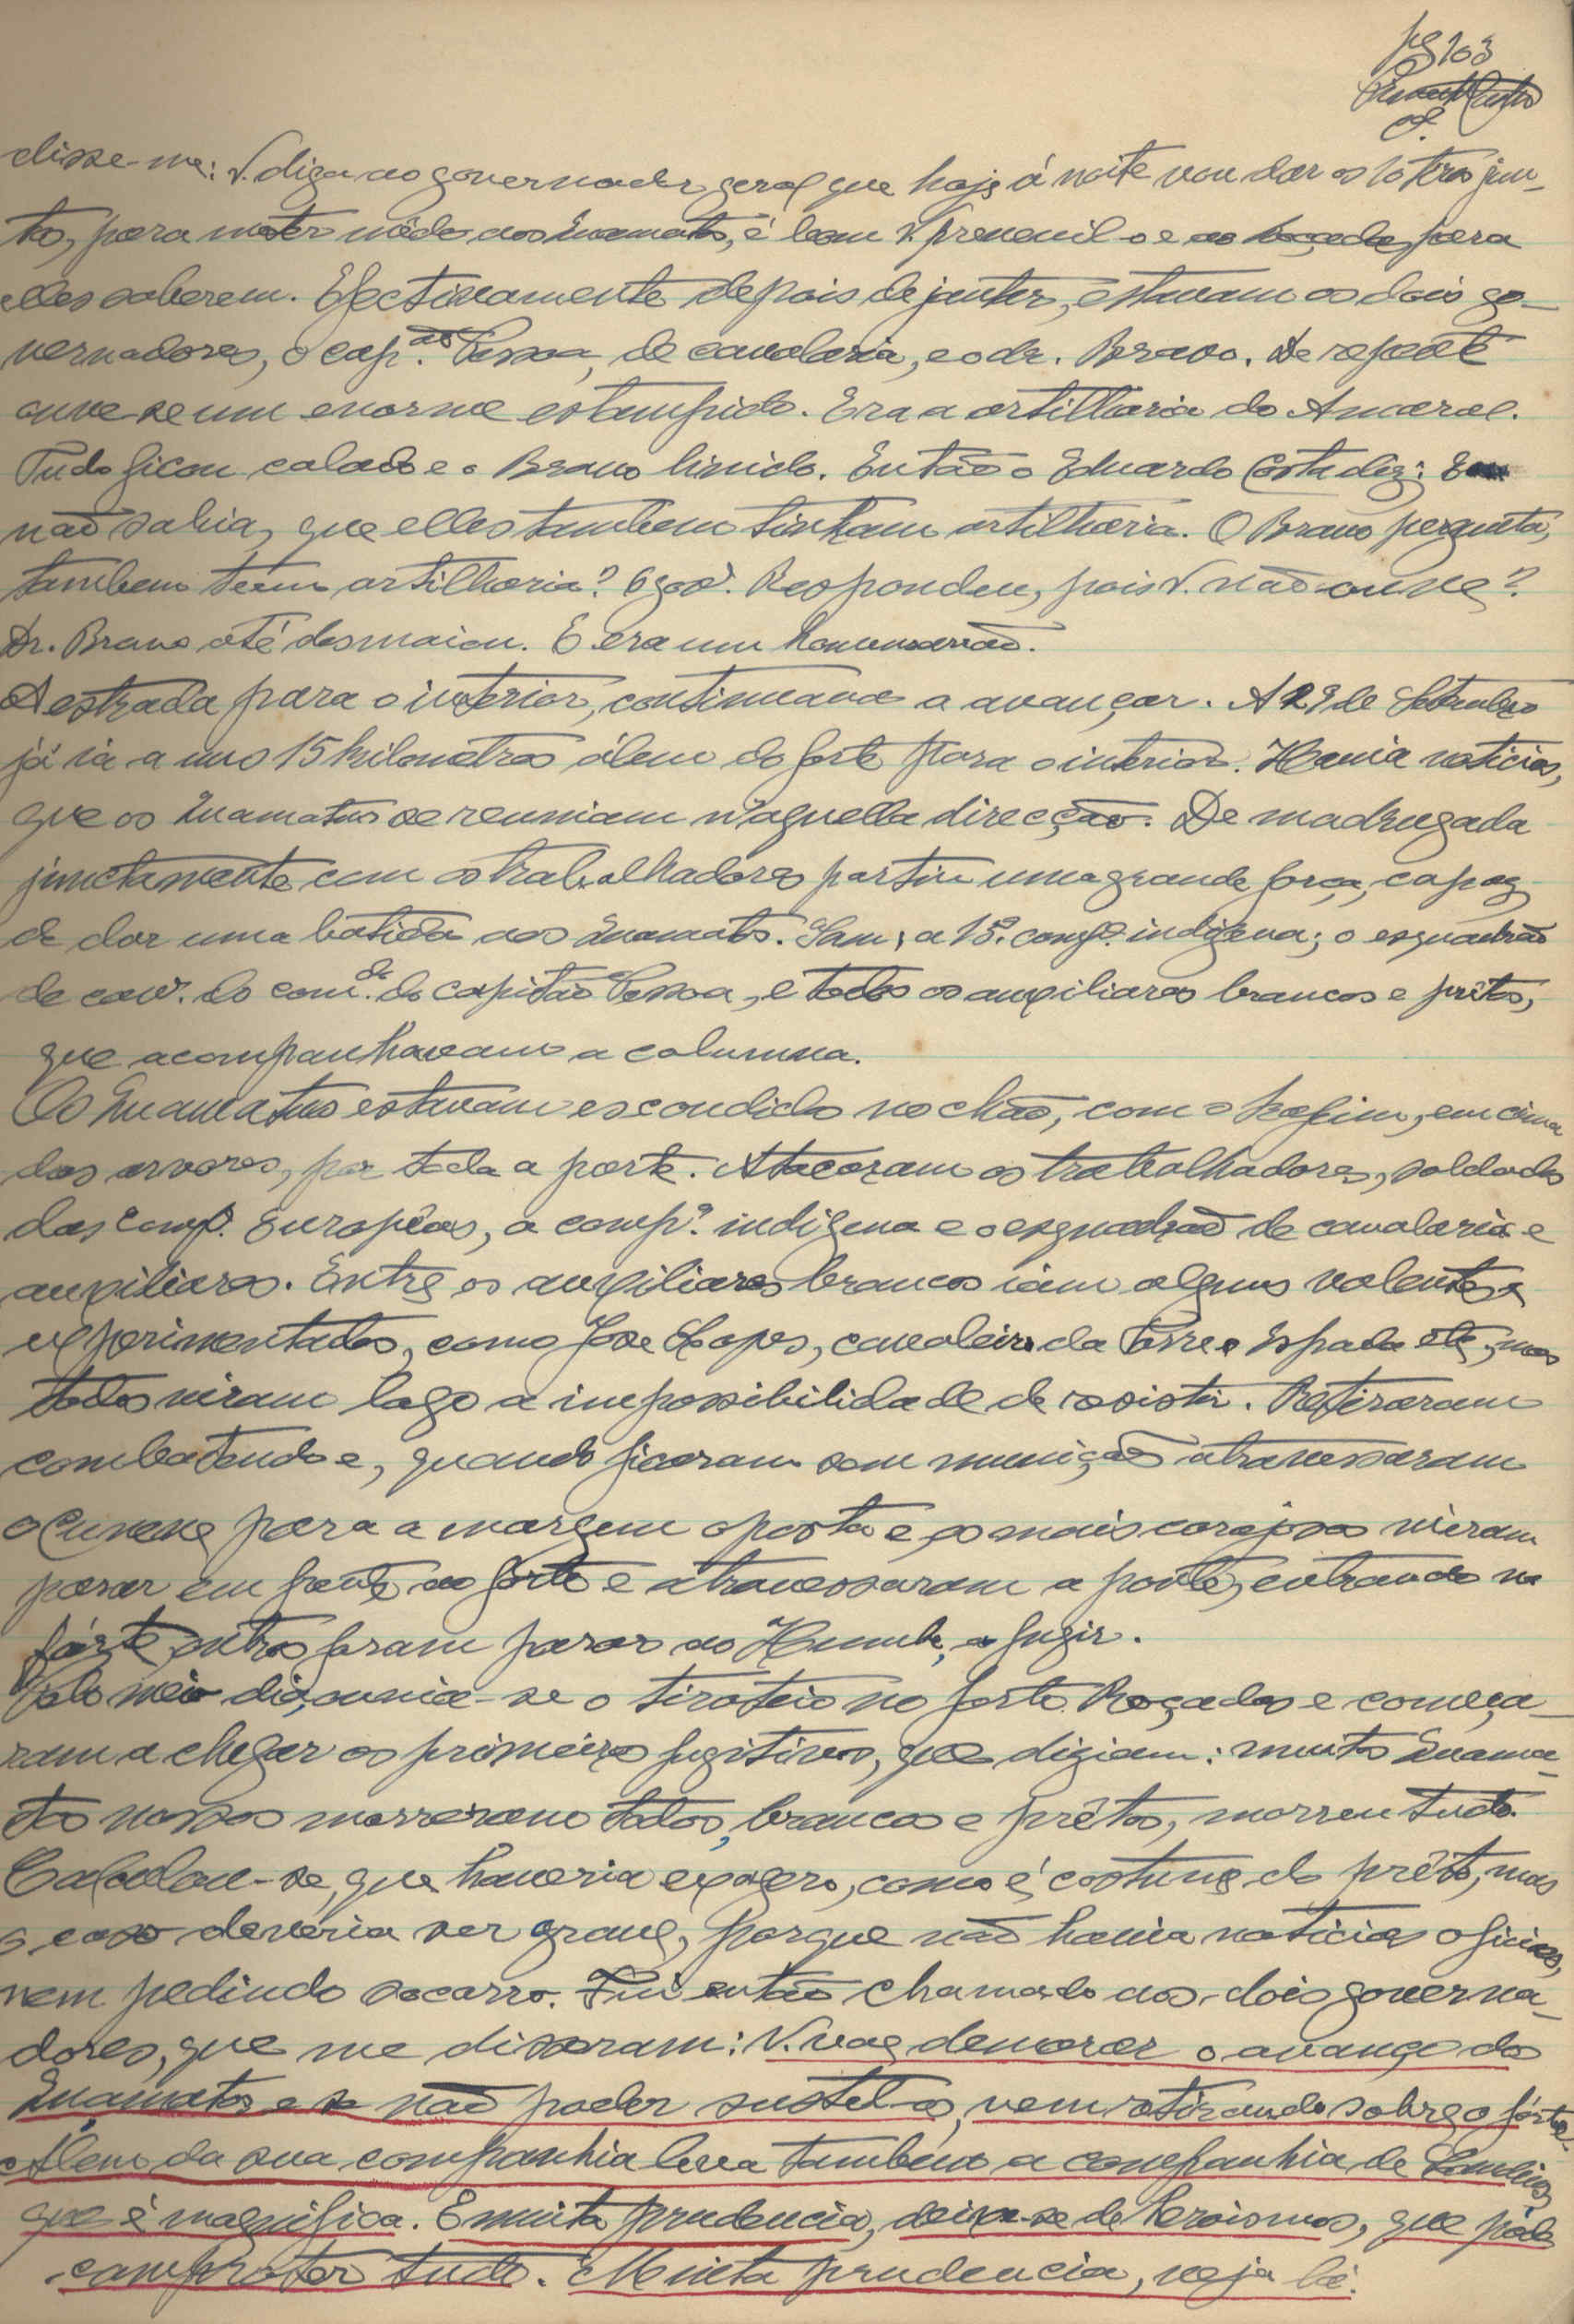 pg 103
disse-me: V. diga ao governador geral que hoje á noite vou dar os 10 tiros jun-
to, para meter mêdo aos Cuamatos, é bom V. prevenil-o e ao Roçadas, para
elles saberem. Efectivamente depois de jantar, estavam os dois go-
vernadores, o cap.ão Pessoa, de cavalaria, e o dr. Bravo. De repente
ouve-se um enorme estampido. Era a artilharia do Amaral.
Tudo ficou calado e o Bravo livido. Então o Eduardo Costa diz: Eu
não sabia, que elles tambem tinham artilharia. O Bravo pergunta,
tambem teem artilharia? O gov.r Respondeu, pois V. não ouve?
Dr. Bravo até desmaiou. E era um homensarrão.
A estrada para o interior, continuava a avançar. A 29 de Setembro
já ia a uns 15 kilometros álem do forte para o interior. Havia noticias,
que os Cuamatus se reuniam n'aquella direcção. De madrugada
junctamente com os trabalhadores partiu uma grande força, capaz
de dar uma batida aos Cuamatos. Iam, a 15ª comp.ª indigena; o esquadrão
de cav.ª do com.do do capitão Pessoa, e todos os auxiliares brancos e prêtos,
que acompanhavam a columna.
Os Cuamatus estavam escondidos no chão, com o kapim, em cima
das arvores, por toda a parte. Atacaram os trabalhadores, soldados
das comp.as Européas, a comp.ª indigena e o esquadrão de cavalaria e
auxiliares. Entre os auxiliares brancos iam alguns valentes e
experimentados, como José Lopes, cavaleiro da Torre e Espada etc, mas
todos viram logo a impossibilidade de resistir. Retiraram
combatendo e, quando ficaram sem munição atravessaram
o Cunene para a margem oposta e os mais corajosos vieram
parar em frente ao forte e atravessaram a ponte, entrando no
fórte, outros foram parar ao Humbe, a fugir.
Pelo meio dia, ouvia-se o tiroteio no forte Roçadas e começa-
ram a chegar os primeiros fugitivos, que diziam: muito Cuama-
to nossos morreram todos, brancos e prêtos, morreu tudo.
Calculou-se, que haveria exagero, como é costume do prêto, mas
o caso deveria ser grave, porque não havia noticias oficiaes,
nem pedindo socorro. Fui então chamado aos dois governa-
dores, que me disseram: V. vae demorar o avanço dos
Cuamatos e se não poder sustel-os, vem retirando sobre o fórte.
Alem da sua companhia leva tambem a companhia de Landins,
que é magnifica. E muita prudencia, deixe-se de heroismos, que póde
comprometer tudo. Muita prudencia, veja lá.